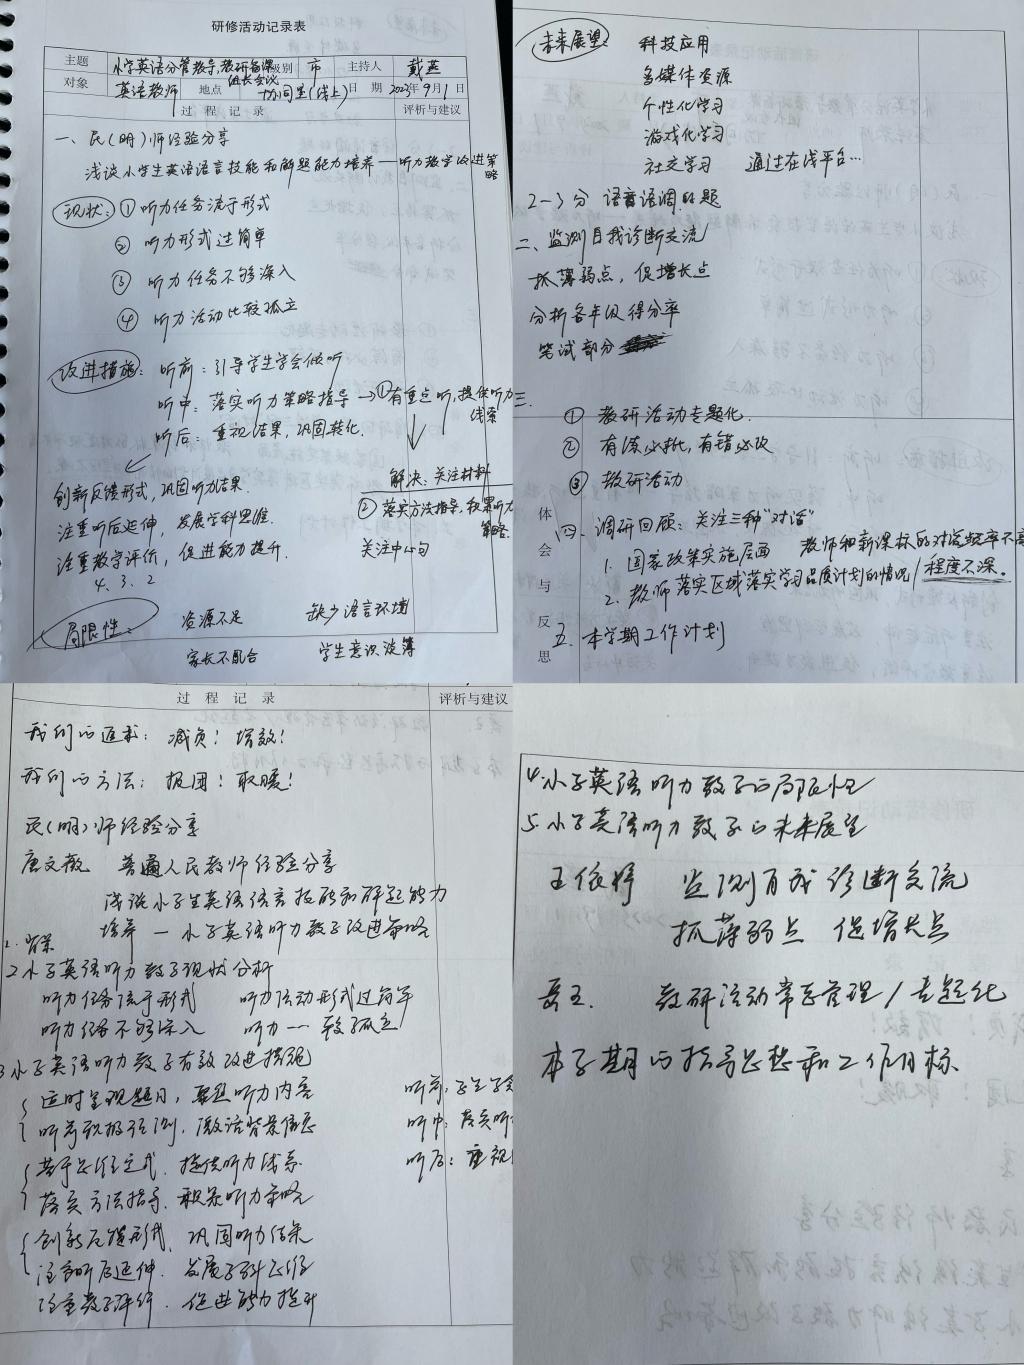 研修活动记录表
主题 小学英语分管教导,教研备课组长会议 级别 市 主持人 戴燕
对象 英语教师 地点 协同室(线上) 日期 2023年9月1日
过程记录 评析与建议
一、民(明)师经验分享
浅谈小学生英语语言技能和解题能力培养——听力教学改进策略
现状: ① 听力任务流于形式
② 听力形式过简单
③ 听力任务不够深入
④ 听力活动比较孤立
改进措施: 听前: 引导学生学会倾听
听中: 落实听力策略指导 → ①有重点听,提供听力线索
听后: 重视结果,巩固转化.
解决: 关注材料
创新反馈形式,巩固听力结果.
②落实方法指导,积累听力策略.
注重听后延伸, 发展学科思维.
关注中心句
注重教学评价, 促进能力提升.
4、3、2
局限性: 资源不足 缺少语言环境
家长不配合 学生意识淡薄
未来展望: 科技应用
多媒体资源
个性化学习
游戏化学习
社交学习 通过在线平台…
2-3分 语音语调的题
二、监测自我诊断交流
抓薄弱点,促增长点
分析各年级得分率
笔试部分
三.
① 教研活动专题化.
② 有练必批,有错必改
③ 教研活动
体会与反思
四、调研回顾: 关注三种"对话"
1. 国家政策实施层面 教师和新课标的对话频率不高
2. 教师落实区域落实学习品质计划的情况/程度不深。
五. 本学期工作计划
过程记录 评析与建议
我们的追求: 减负! 增效!
我们的方法: 报团! 取暖!
民(明)师经验分享
唐文薇 普通人民教师经验分享
浅谈小学生英语语言技能和解题能力
培养 — 小学英语听力教学改进策略
1. 背景
2 小学英语听力教学现状分析
听力任务流于形式 听力活动形式过简单
听力任务不够深入 听力一 较孤立
3 小学英语听力教学有效改进措施
适时呈现题目,聚焦听力内容 听前: 学生学会
听前积极预测,激活背景信息 听中: 落实听
基于思维定式,提供听力线索 听后: 重视
落实方法指导,积累听力策略
创新反馈形式,巩固听力结果
注重听后延伸,发展学科思维
注重教学评价,促进能力提升
4. 小学英语听力教学的局限性
5. 小学英语听力教学的未来展望
王依婷 监测自我诊断交流
抓薄弱点 促增长点
教研活动常态管理/专题化
本学期的指导思想和工作目标